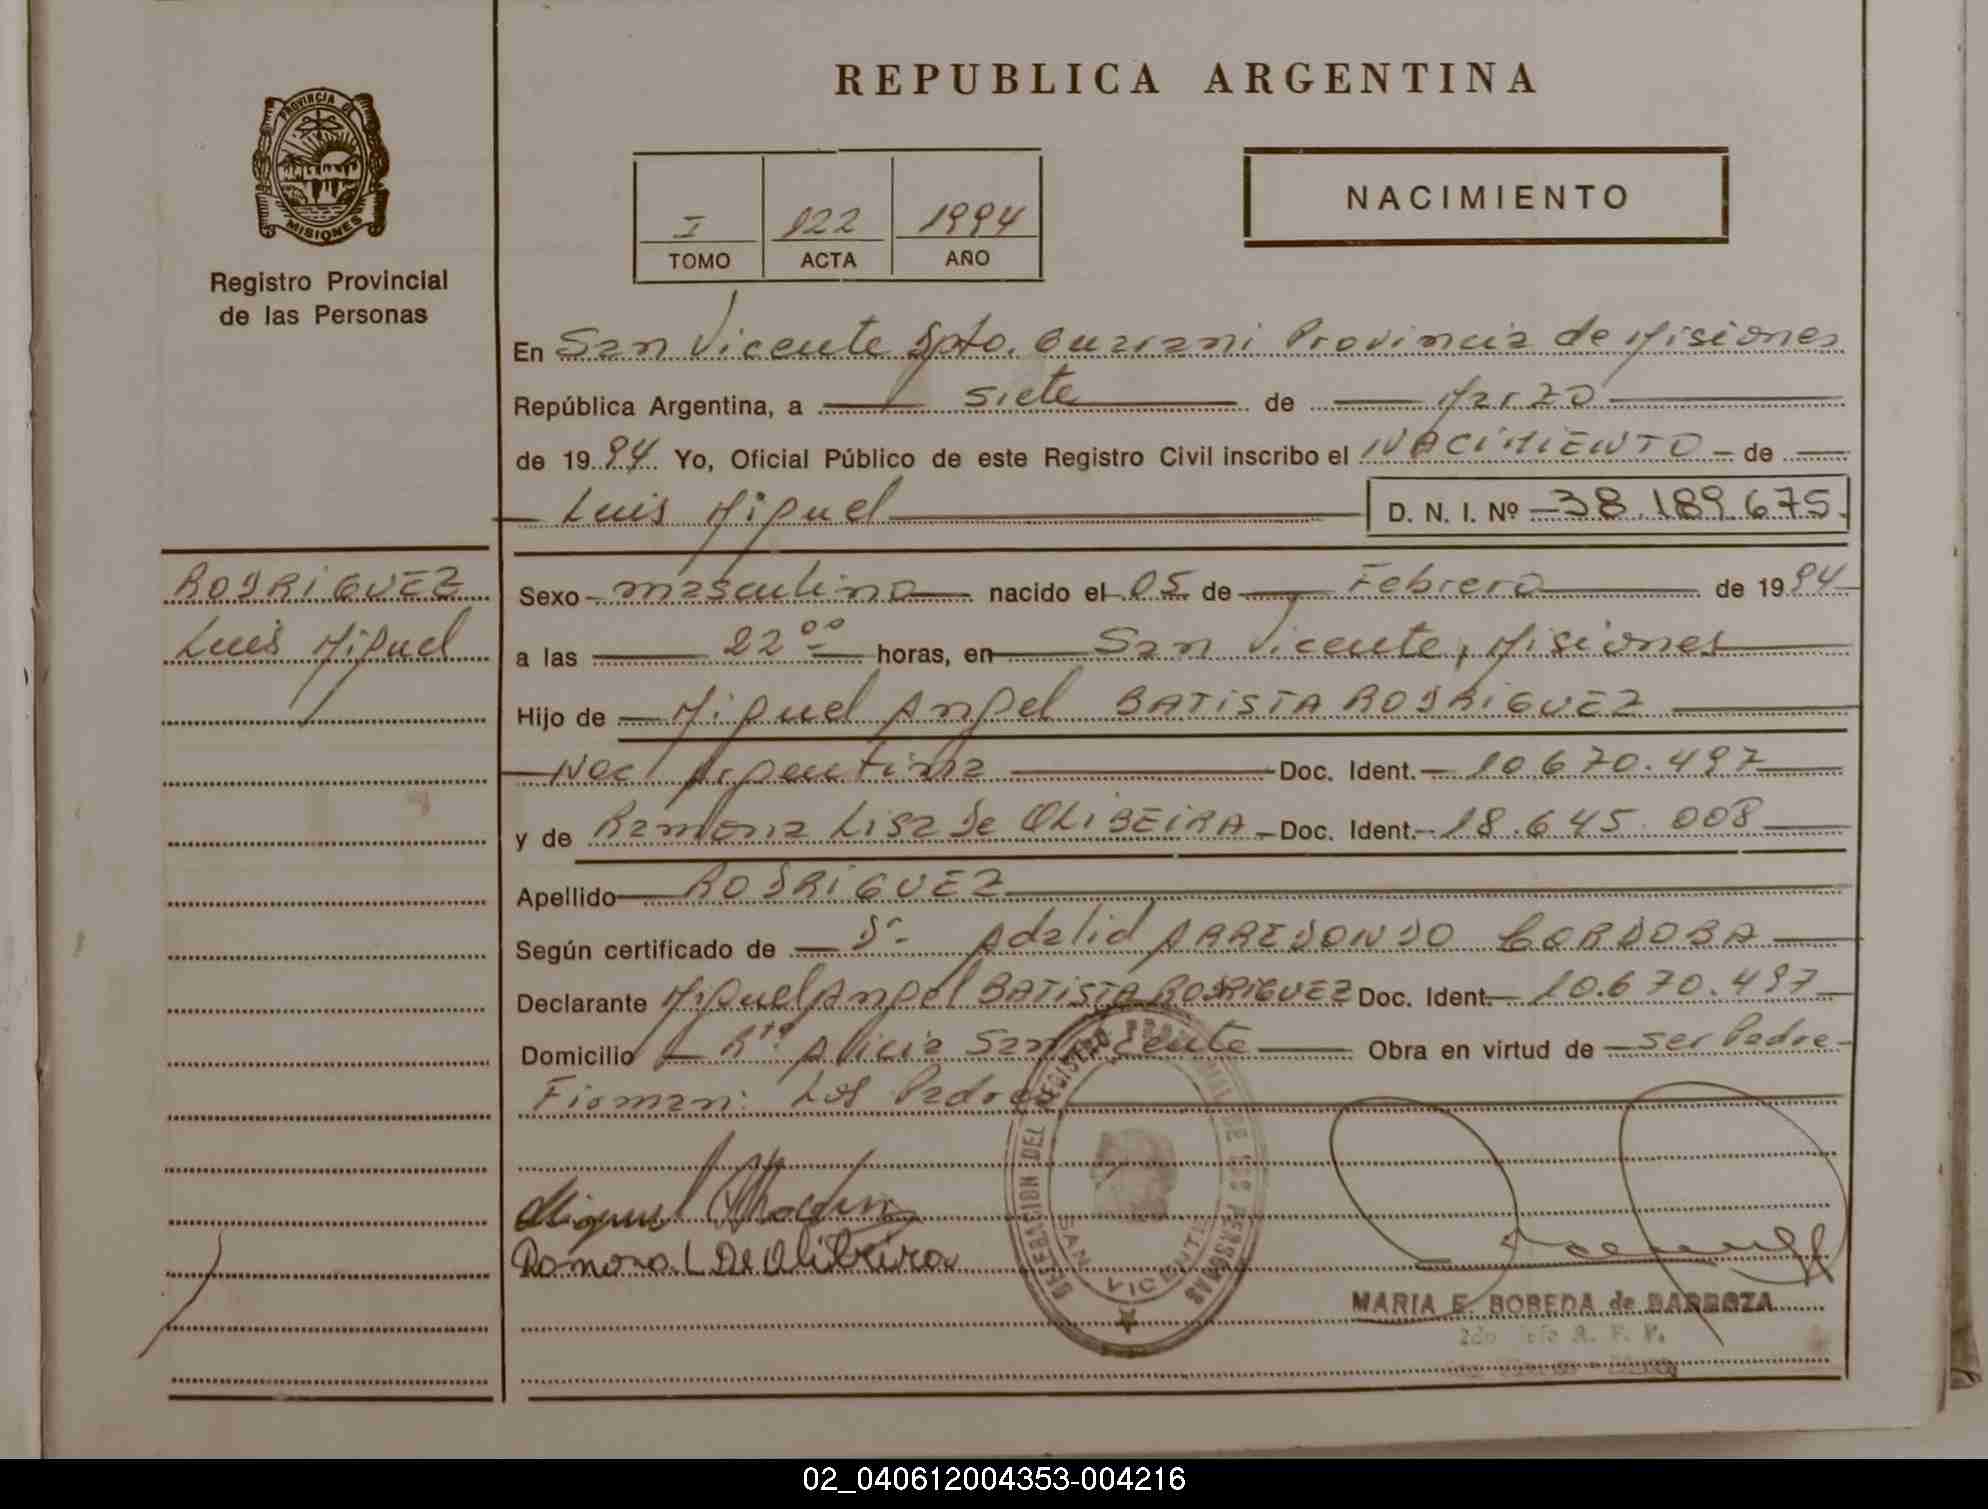 REPUBLICA ARGENTINA
PROVINCIA DE
MISIONES
Registro Provincial
de las Personas
I 122 1994
TOMO ACTA AÑO
NACIMIENTO
En San Vicente Dpto. Guarani Provincia de Misiones
República Argentina, a siete de Marzo
de 1994 Yo, Oficial Público de este Registro Civil inscribo el NACIMIENTO de
Luis Miguel D. N. I. Nº 38.189.675.
RODRIGUEZ
Luis Miguel
Sexo masculino nacido el 05 de Febrero de 1994
a las 22⁰⁰ horas, en San Vicente, Misiones
Hijo de Miguel Angel BATISTA RODRIGUEZ
Nac Argentina Doc. Ident. 10.670.497
y de Ramona Lisa De OLIBEIRA Doc. Ident. 18.645.008
Apellido RODRIGUEZ
Según certificado de Dr. Adalid ARREDONDO CORDOBA
Declarante Miguel Angel BATISTA RODRIGUEZ Doc. Ident. 10.670.497
Domicilio Rto. Alicia San Vicente Obra en virtud de ser Padre
Firman: Los Padres
DELEGACION DEL REGISTRO PROVINCIAL DE LAS PERSONAS
SAN VICENTE
Miguel
Ramona L De Olibeira
MARIA E. BOBEDA de BARBOZA
02_040612004353-004216